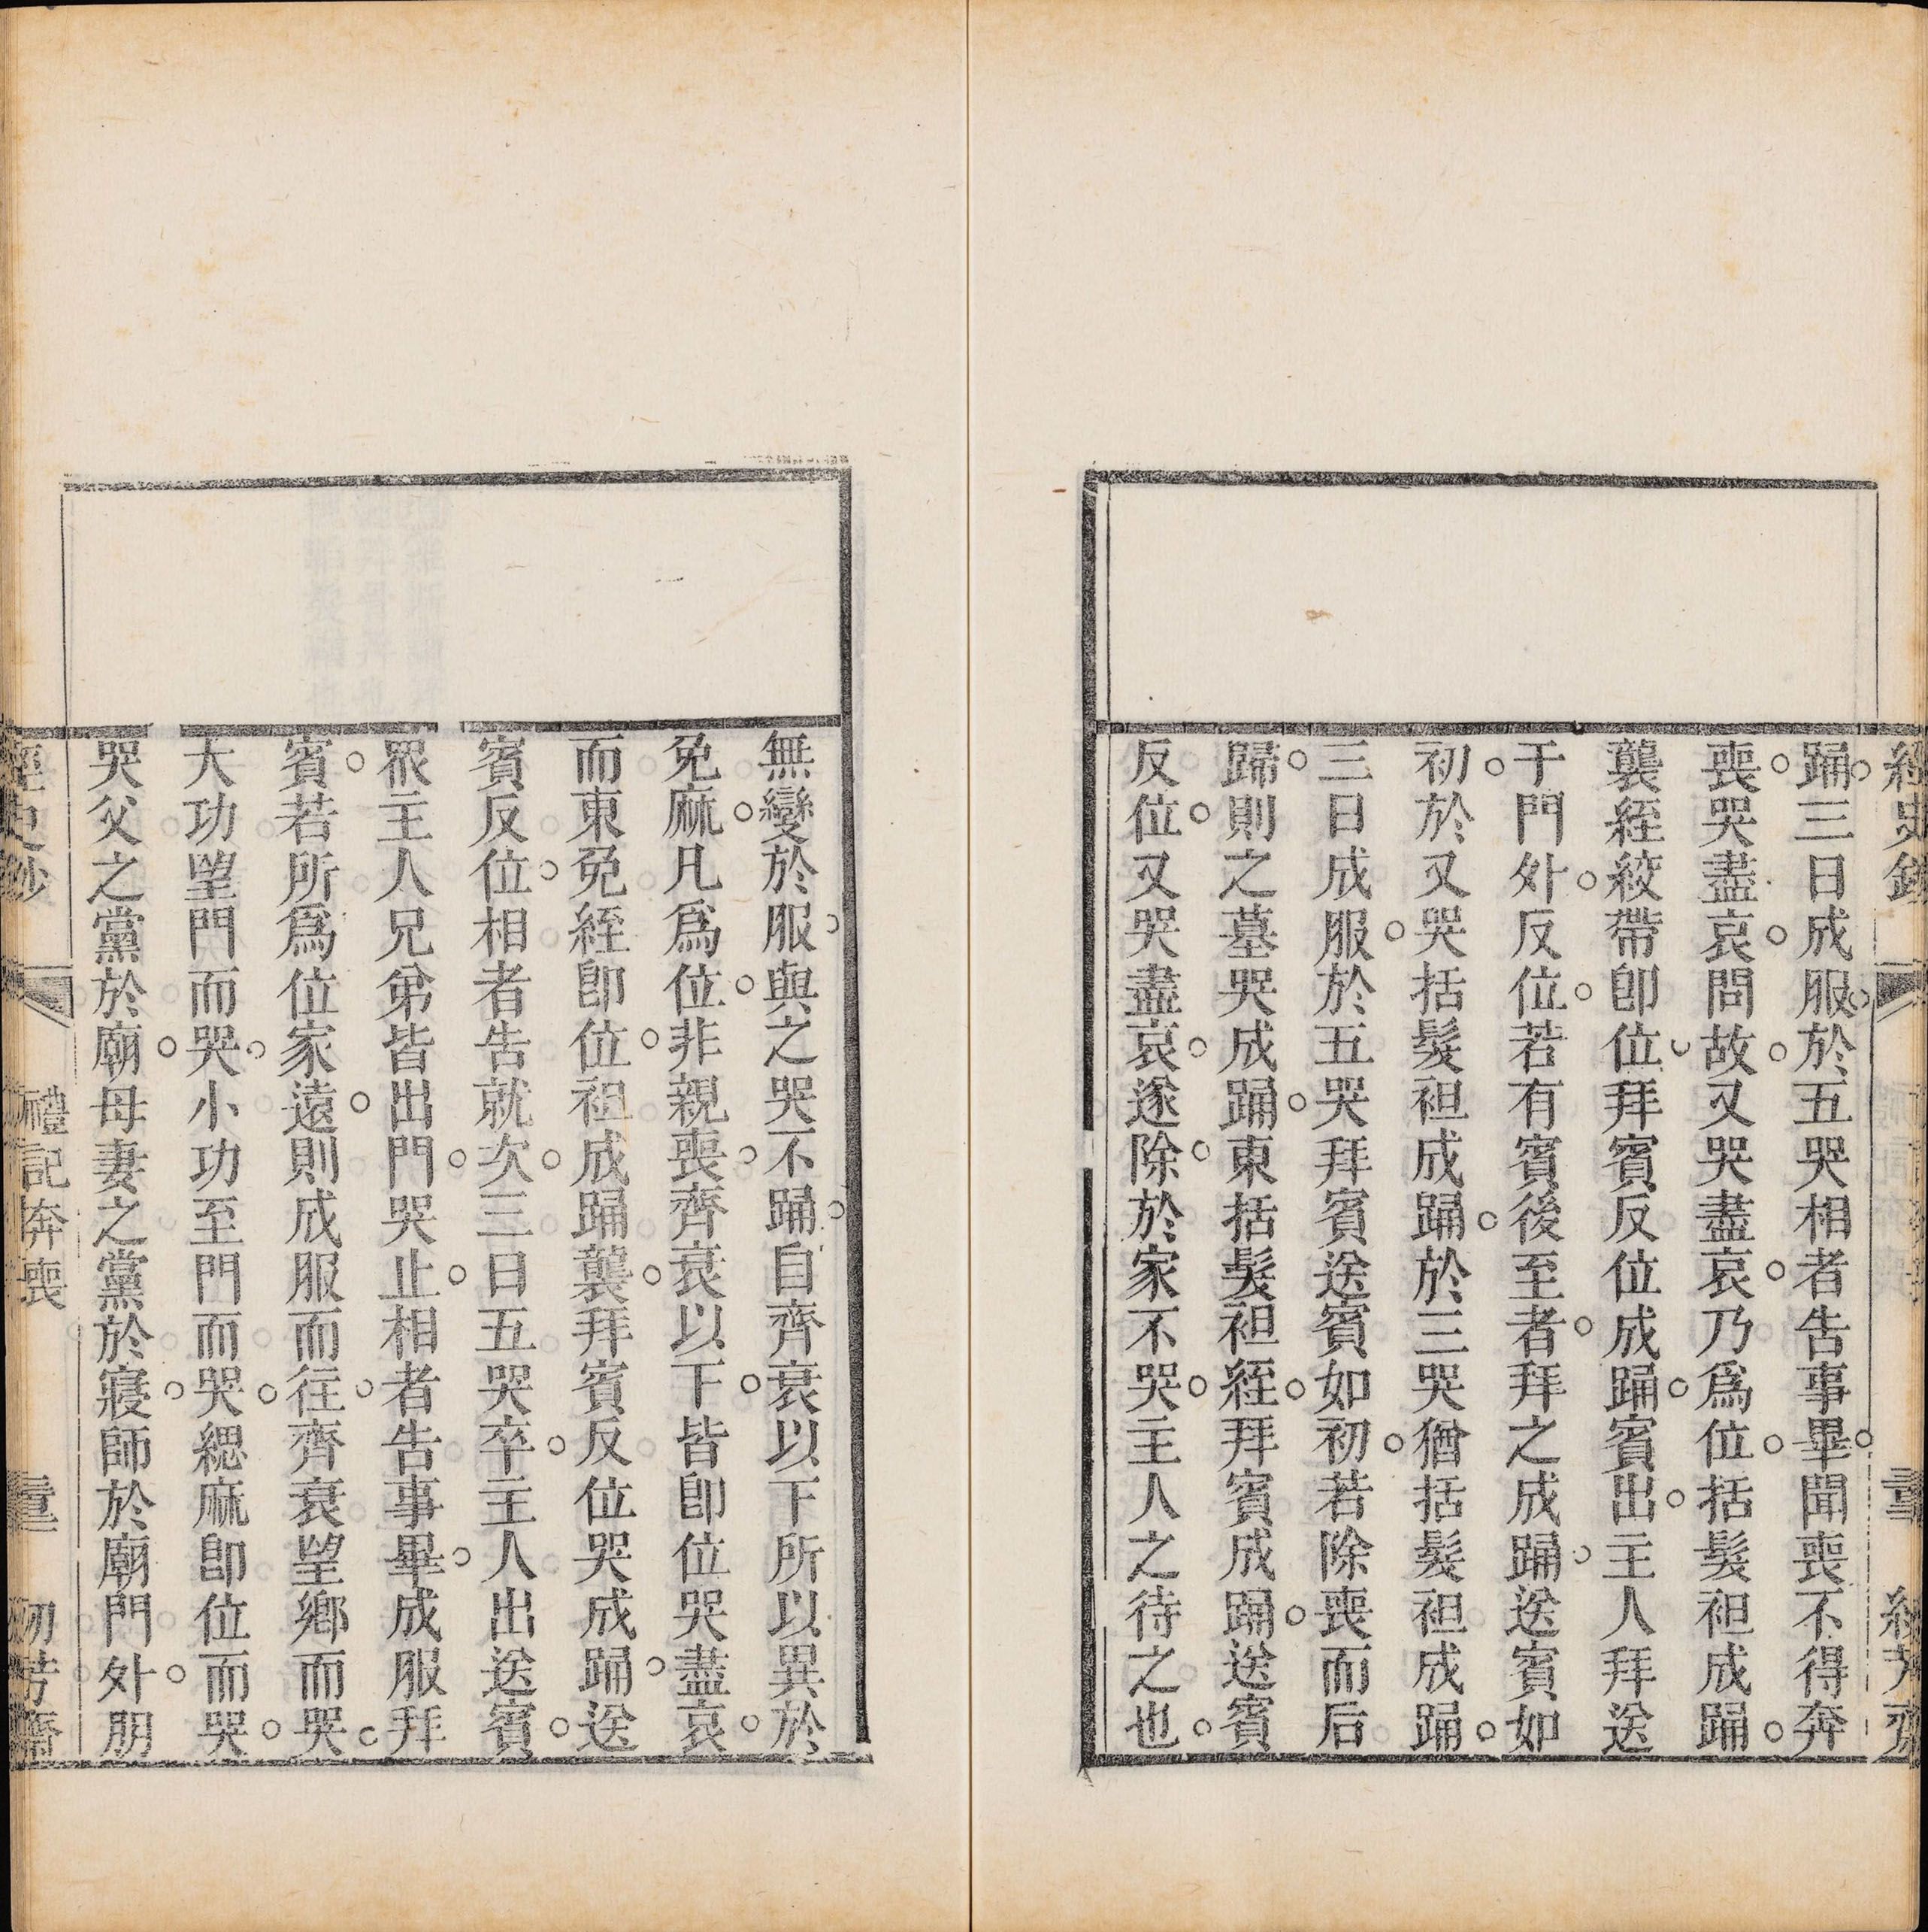 踊三日成服於五哭相者告事畢聞喪不得奔
喪哭盡哀問故又哭盡哀乃爲位括髮袒成踊
襲絰絞帶卽位拜賓反位成踊賓出主人拜送
于門外反位若有賓後至者拜之成踊送賓如
初於又哭括髮袒成踊於三哭猶括髮袒成踊
三日成服於五哭拜賓送賓如初若除喪而后
歸則之墓哭成踊東括髮袒絰拜賓成踊送賓
反位又哭盡哀遂除於家不哭主人之待之也
無變於服與之哭不踊自齊衰以下所以異於
免麻凡爲位非親喪齊衰以下皆卽位哭盡哀
而東免絰卽位袒成踊襲拜賓反位哭成踊送
賓反位相者告就次三日五哭卒主人出送賓
眾主人兄弟皆出門哭止相者告事畢成服拜
賓若所爲位家遠則成服而往齊衰望鄉而哭
大功望門而哭小功至門而哭緦麻卽位而哭
哭父之黨於廟母妻之黨於寢師於廟門外朋
經史鈔 禮記奔喪